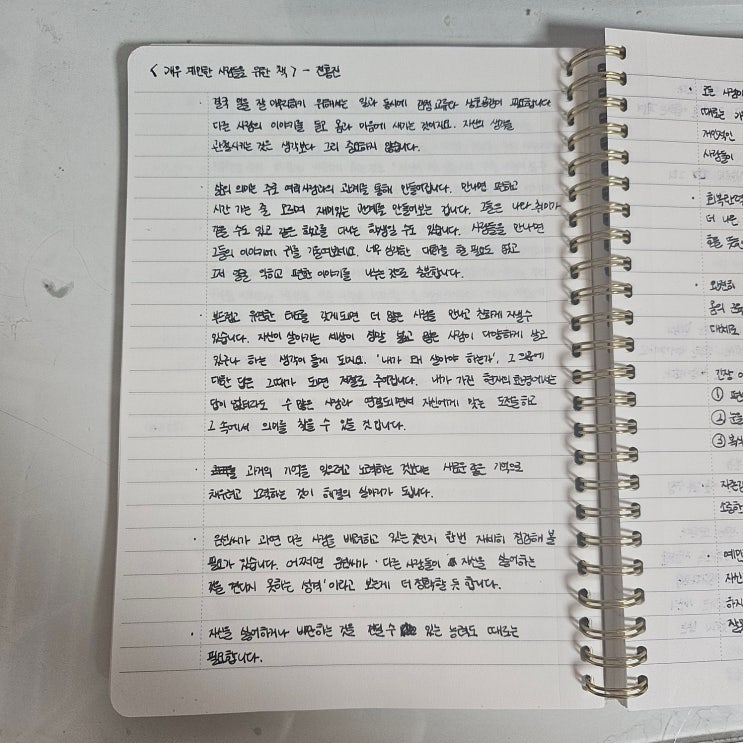 < 매우 예민한 사람들을 위한 책 > - 전홍진
· 결국 말을 잘 이해하기 위해서는 일과 동시에 감정 교류와 상호공감이 필요합니다
다른 사람의 이야기를 듣고 몸과 마음에 새기는 것이지요. 자신의 생각을
관철시키는 것은 생각보다 그리 중요하지 않습니다.
· 삶의 의미는 주로 여러 사람과의 관계를 통해 만들어집니다. 만나면 편하고
시간 가는 줄 모르며 재미있는 관계를 만들어보는 겁니다. 그들은 나와 취미가
같을 수도 있고 같은 학교를 다니는 학생일 수도 있습니다. 사람들을 만나면
그들의 이야기에 귀를 기울여보세요. 너무 심각한 대화를 할 필요도 없고
그저 얼굴 익히고 편한 이야기를 나누는 것으로 충분합니다.
· 부드럽고 유연한 태도를 갖게 되면 더 많은 사람을 만나고 친하게 지낼 수
있습니다. 자신이 살아가는 세상이 정말 넓고 많은 사람이 다양하게 살고
있구나 하는 생각이 들게 되지요. '내가 왜 살아야 하는가', 그 물음에
대한 답은 그때가 되면 저절로 주어집니다. 내가 가진 현재의 환경에서는
답이 없더라도 수 많은 사람과 연결되면서 자신에게 맞는 도전을 하고
그 속에서 의미를 찾을 수 있을 것입니다.
· 과거의 기억을 잊으려고 노력하는 것보다는 새로운 좋은 기억으로
채우려고 노력하는 것이 해결의 실마리가 됩니다.
· 은원씨가 과연 다른 사람을 배려하고 있는 것인지 한번 자세히 점검해 볼
필요가 있습니다. 어쩌면 은원씨가 '다른 사람들이 자신을 싫어하는
것을 견디지 못하는 성격'이라고 보는게 더 정확할 듯 합니다.
· 자신을 싫어하거나 비난하는 것을 견딜 수 있는 능력도 때로는
필요합니다.
· 모든 사람이
때로는
개인적인
사람들이
· 회복탄력
더 나은
· 완전히
몸의
대처로
· 긴장
①
② 눈을
③ 복식
· 자존감
소중한
· 예민
· 자신
하지
잘못